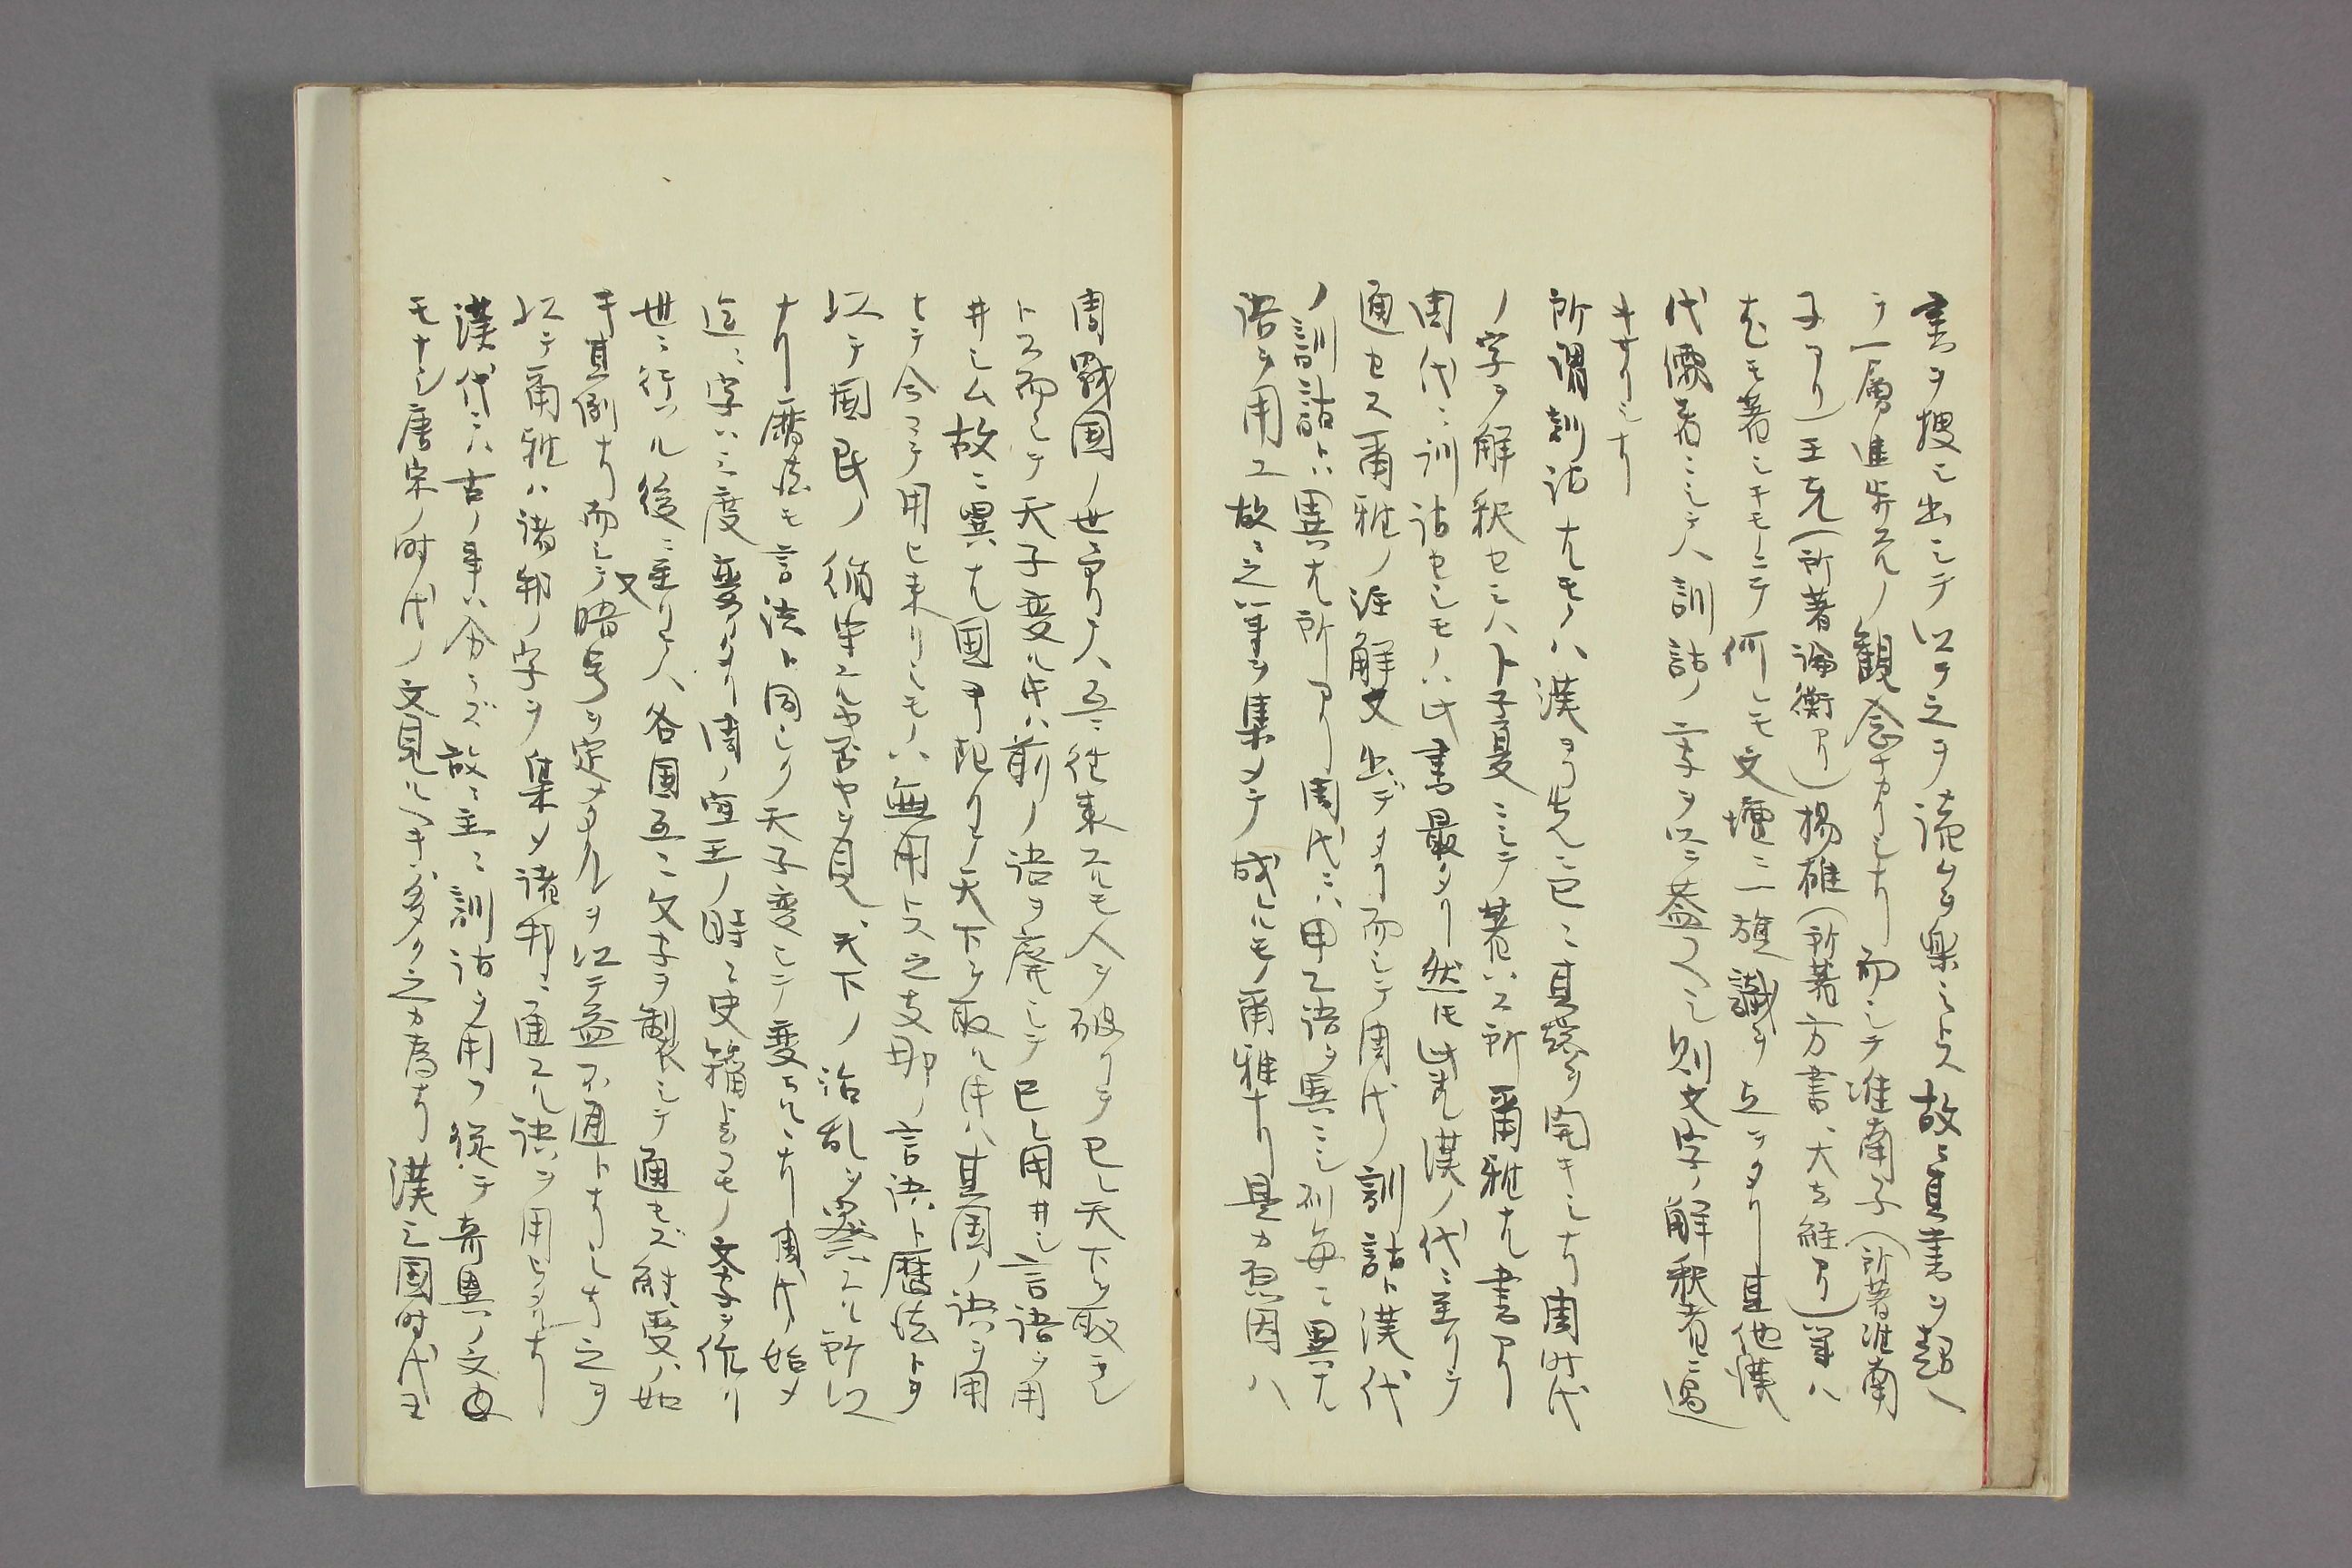 書ヲ捜シ出シテ以テ之ヲ読ムヲ楽シトス故ニ其書ヲ読ハ
テ一層進歩スルノ観念ナカリシナリ而シテ淮南子(所著淮南
子アリ)王充(所著論衡アリ)揚雄(所著方言、大玄経アリ)等ハ
尤モ著シキモノニテ何レモ文壇ニ一旗識ヲ立ツタリ其他漢
代儒者ニシテハ訓詁ノ二字ヲ以テ蓋フヘシ則文字ノ解釈者ニ過
キサリシナリ
所謂訓詁ナルモノハ漢ヨリ先ニ已ニ其端ヲ開キシナリ周時代
ノ字ヲ解釈セシハ卜子夏ニシテ著ハス所爾雅ナル書アリ
周代ニ訓詁セシモノハ此書最タリ然レ𪜈此書漢ノ代ニ至リテ
通セス爾雅ノ註解又出デタリ而シテ周代ノ訓詁ト漢代
ノ訓詁トハ異ナル所アリ周代ニハ甲乙語ヲ異ニシ列毎ニ異ナル
語ヲ用ユ故ニ之等ヲ集メテ成レルモノ爾雅ナリ是カ原因ハ
周戦国ノ世ニ当リテハ互ニ往来スルモ人ヲ破リテ己レ天下ヲ取ラン
トス而シテ天子変ル𪜈ハ前ノ語ヲ廃シテ己レ用井シ言語ヲ用
井シム故ニ異ナル国ヨリ起リテ天下ヲ取ル𪜈ハ其国ノ語ヲ用
ヒテ今マテ用ヒ来リシモノハ無用トス之支那ノ言語ト暦法トヲ
以テ国民ノ循牢スルヤ否ヤヲ見、天下ノ治乱ヲ察スル所以
ナリ暦法モ言語ト同シク天子変シテ変ラルヽナリ周代ノ始メ
迄ニ字ハ三度変リタリ周ノ宣王ノ時ニ史籀ト云フモノ文字ヲ作リ
世ニ行ハル後ニ至リテハ各国互ニ文字ヲ製シテ通セズ
キ其例ナリ而シテ又暗号ヲ定メタルヲ以テ益不通トナリシナリ之ヲ
以テ爾雅ハ諸邦ノ字ヲ集メ諸邦ニ通スル語ヲ用ヒタルナリ
漢代ニハ古ノ事ハ分ラズ故ニ主ニ訓詁ヲ用フ従テ奇異ノ文
モナシ唐宋ノ時代ノ文見ルヘキ多ク之カ為ナリ漢三国時代ヨ